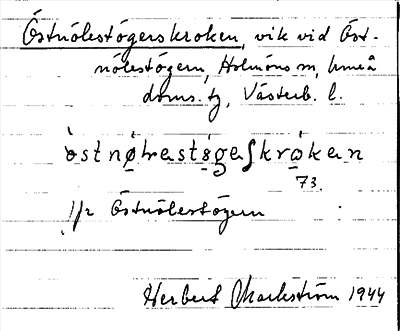 Östnölestögerskroken, vik vid Öst-
nölestögern, Holmöns sn, Umeå
doms. tg, Västerb. l.
östnølrastøgaʃkrokan
73.
1/2 Östnölestögern
Herbert Markström 1944